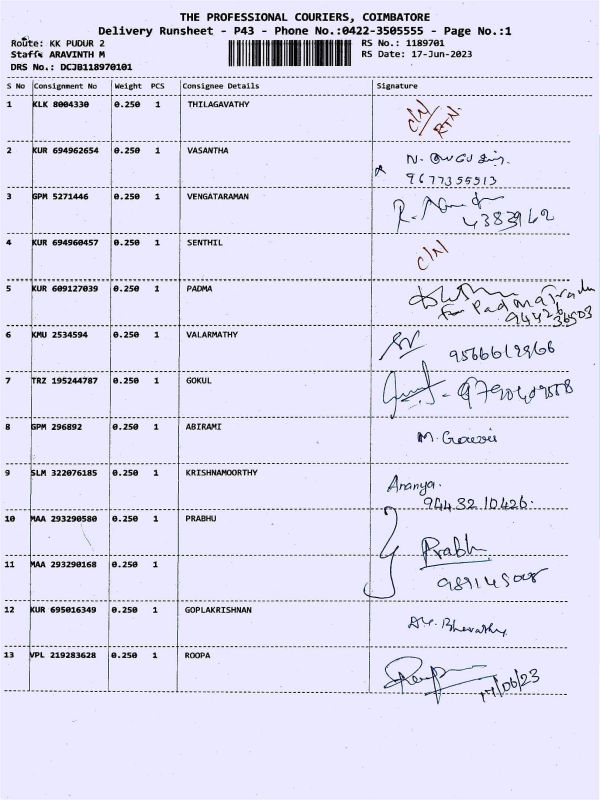 THE PROFESSIONAL COURIERS, COIMBATORE
Delivery Runsheet - P43 - Phone No.:0422-3505555 - Page No.:1
Route: KK PUDUR 2 RS No.: 1189701
Staff: ARAVINTH M RS Date: 17-Jun-2023
DRS No.: DCJB118970101
S No Consignment No Weight PCS Consignee Details Signature
1 KLK 8004330 0.250 1 THILAGAVATHY C/N/ RTN.
2 KUR 694962654 0.250 1 VASANTHA
9677355513
3 GPM 5271446 0.250 1 VENGATARAMAN
4 KUR 694960457 0.250 1 SENTHIL C/N/
5 KUR 609127039 0.250 1 PADMA
for Padma
94426
36503
6 KMU 2534594 0.250 1 VALARMATHY
7 TRZ 195244787 0.250 1 GOKUL
8 GPM 296892 0.250 1 ABIRAMI M. Gowri
9 SLM 322076185 0.250 1 KRISHNAMOORTHY Ananya.
94432 10426.
10 MAA 293290580 0.250 1 PRABHU Prabh
11 MAA 293290168 0.250 1
12 KUR 695016349 0.250 1 GOPLAKRISHNAN
13 VPL 219283628 0.250 1 ROOPA
17/06/23